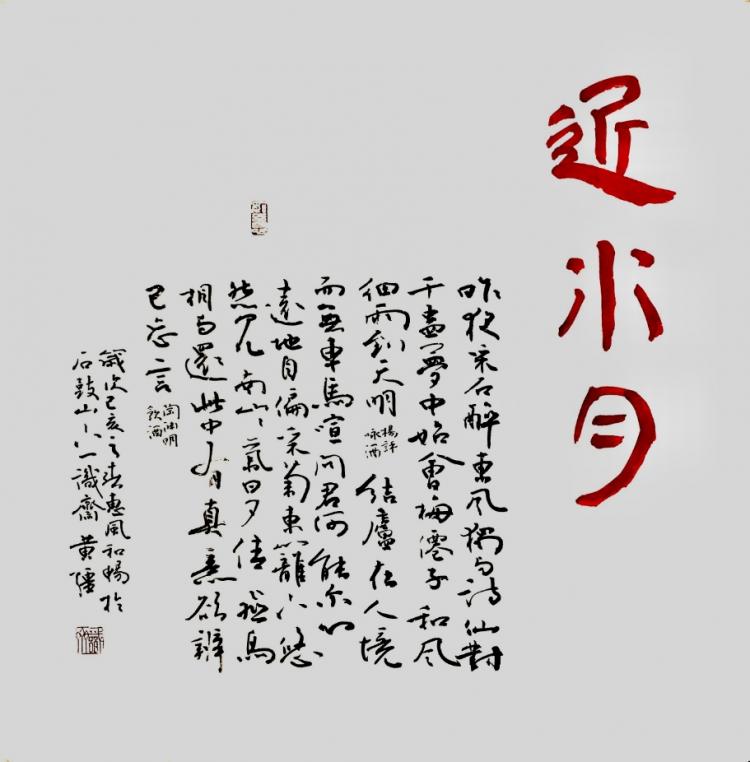 近水月
昨夜采石醉東風獨与詩仙對
干盡夢中始會梅僊子和風
細雨到天明
楊評
咏酒
結廬在人境
而無車馬喧問君何能尔心
遠地自偏采菊東籬下悠
然見南山々氣日夕佳飛鳥
相与還此中有真意欲辨
已忘言
陶渊明
飲酒
歲次己亥之春惠風和暢於
石鼓山下一識齋黄